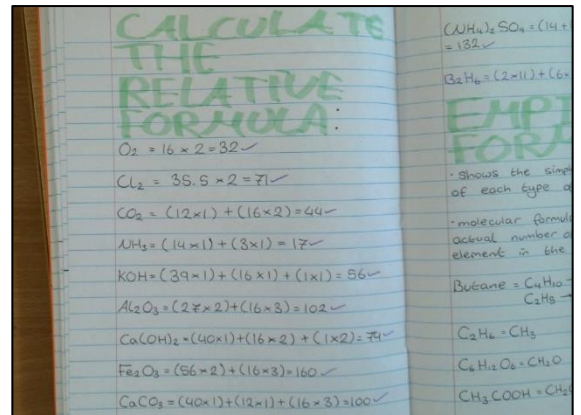 CALCULATE
THE
RELATIVE
FORMULA:
O₂ = 16 × 2 = 32 ✓
Cl₂ = 35.5 × 2 = 71 ✓
CO₂ = (12×1) + (16×2) = 44 ✓
NH₃ = (14×1) + (3×1) = 17 ✓
KOH = (39×1) + (16×1) + (1×1) = 56 ✓
Al₂O₃ = (27×2) + (16×3) = 102 ✓
Ca(OH)₂ = (40×1) + (16×2) + (1×2) = 74 ✓
Fe₂O₃ = (56×2) + (16×3) = 160 ✓
CaCO₃ = (40×1) + (12×1) + (16×3) = 100 ✓
(NH₄)₂SO₄ = (14 +
= 132 ✓
B₂H₆ = (2×11) + (6×
EMPI
FORM
· shows the simpl
of each type
· molecular formul
actual number
element in the
Butane = C₄H₁₀
C₂H₅
C₂H₆ = CH₃
C₆H₁₂O₆ = CH₂O
CH₃COOH = CH₂